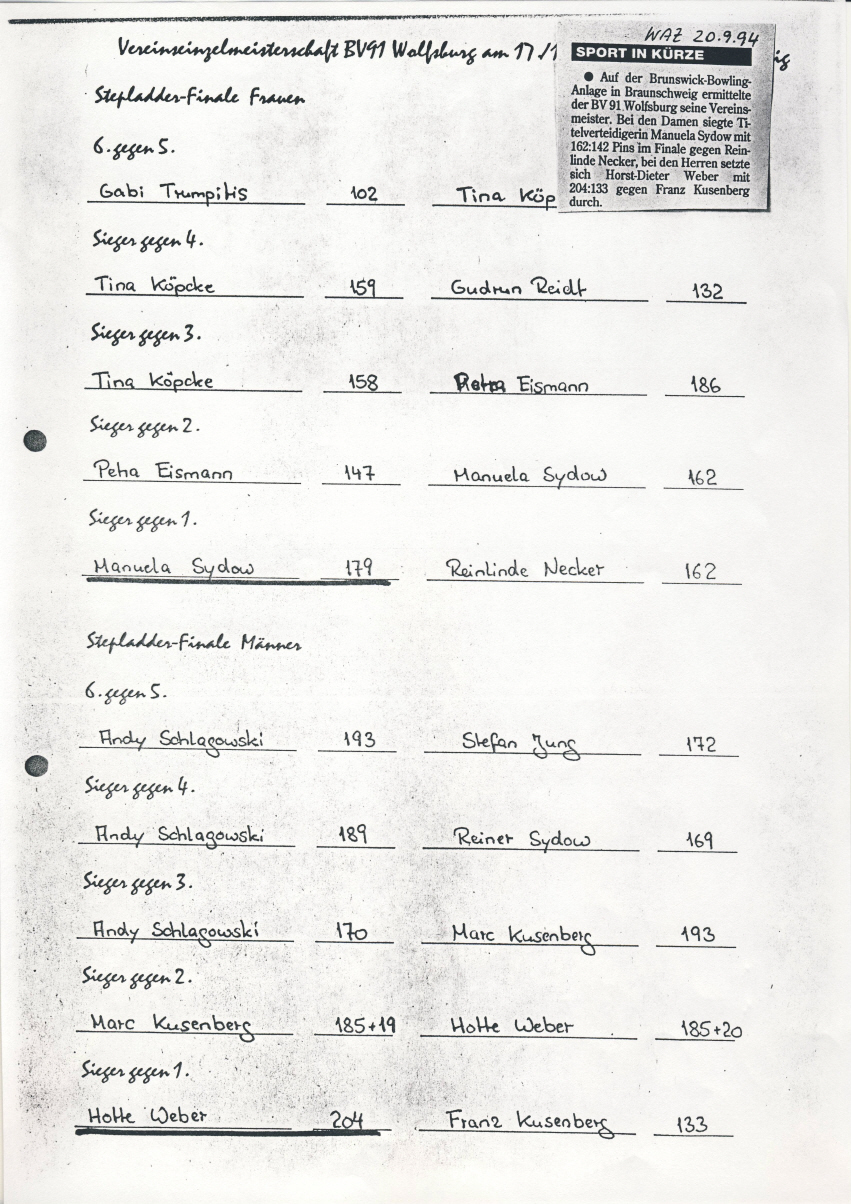 Vereinseinzelmeisterschaft BV91 Wolfsburg am 17./1
ig
WAZ 20.9.94
SPORT IN KÜRZE
● Auf der Brunswick-Bowling-
Anlage in Braunschweig ermittelte
der BV 91 Wolfsburg seine Vereins-
meister. Bei den Damen siegte Ti-
telverteidigerin Manuela Sydow mit
162:142 Pins im Finale gegen Rein-
linde Necker, bei den Herren setzte
sich Horst-Dieter Weber mit
204:133 gegen Franz Kusenberg
durch.
Stepladder-Finale Frauen
6. gegen 5.
Gabi Trumpitis 102 Tina Köp
Sieger gegen 4.
Tina Köpcke 159 Gudrun Reidt 132
Sieger gegen 3.
Tina Köpcke 158 Petra Eismann 186
Sieger gegen 2.
Petra Eismann 147 Manuela Sydow 162
Sieger gegen 1.
Manuela Sydow 179 Reinlinde Necker 162
Stepladder-Finale Männer
6. gegen 5.
Andy Schlagowski 193 Stefan Jung 172
Sieger gegen 4.
Andy Schlagowski 189 Reiner Sydow 169
Sieger gegen 3.
Andy Schlagowski 170 Marc Kusenberg 193
Sieger gegen 2.
Marc Kusenberg 185+19 Hotte Weber 185+20
Sieger gegen 1.
Hotte Weber 204 Franz Kusenberg 133